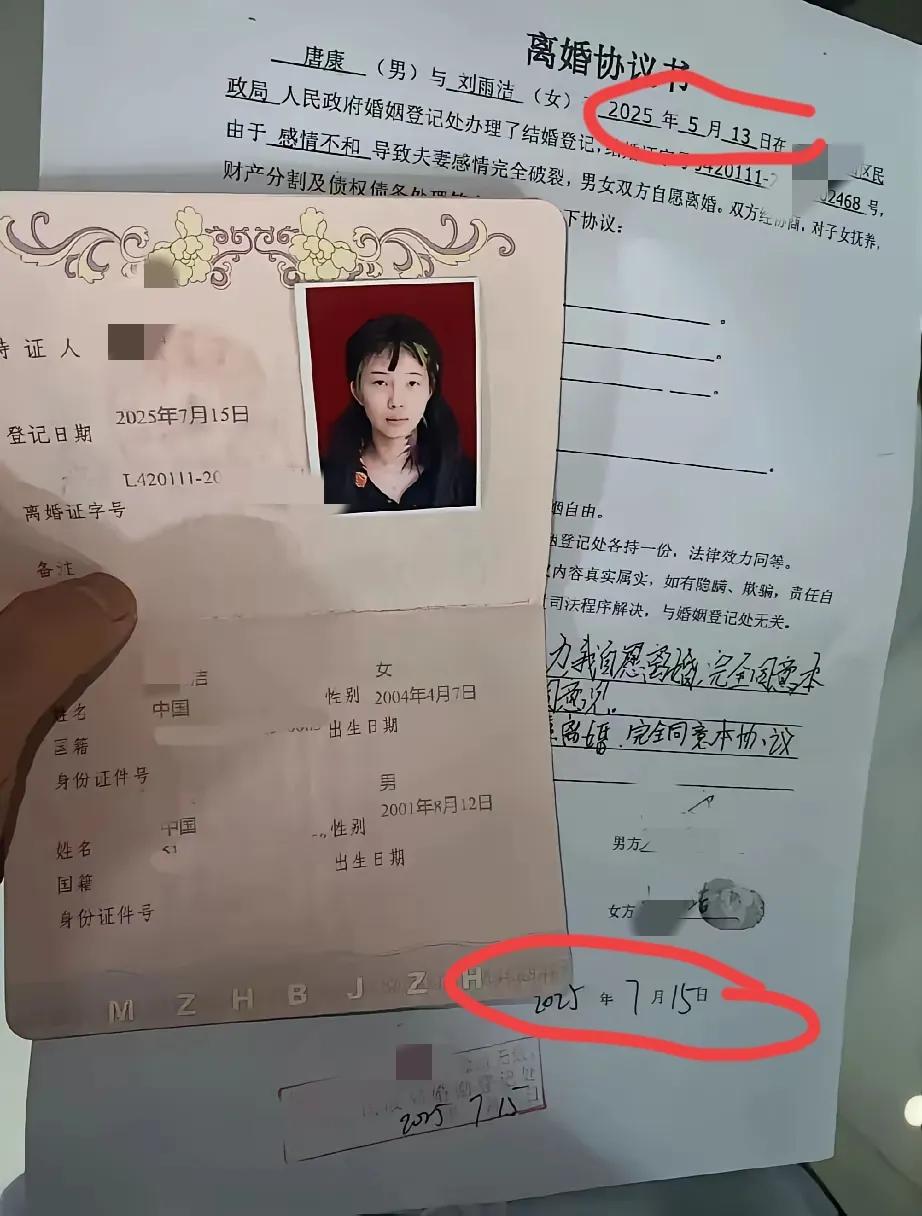 离婚协议书
唐康 （男）与 刘雨洁 （女） 2025 年 5 月 13 日在
政局 人民政府婚姻登记处办理了结婚登记,结婚证字号J420111-2 02468 号，
由于 感情不和 导致夫妻感情完全破裂，男女双方自愿离婚。双方经协商，对子女抚养，
财产分割及债权债务处理 下协议：
持证人
登记日期 2025年7月15日
离婚证字号 L420111-20
备注
姓名 洁 性别 女
国籍 中国 出生日期 2004年4月7日
身份证件号
姓名 性别 男
国籍 中国 出生日期 2001年8月12日
身份证件号
MZHBJZH
姻自由。
姻登记处各持一份，法律效力同等。
内容真实属实，如有隐瞒、欺骗，责任自
司法程序解决，与婚姻登记处无关。
我自愿离婚,完全同意本
协议。
离婚.完全同意本协议
男方
女方 洁
2025 年 7 月 15日
2025 7 15